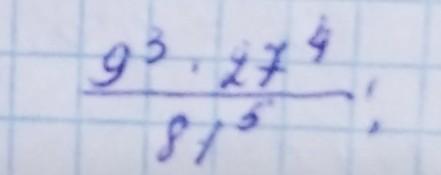 9³ · 27⁴
81⁵ ;